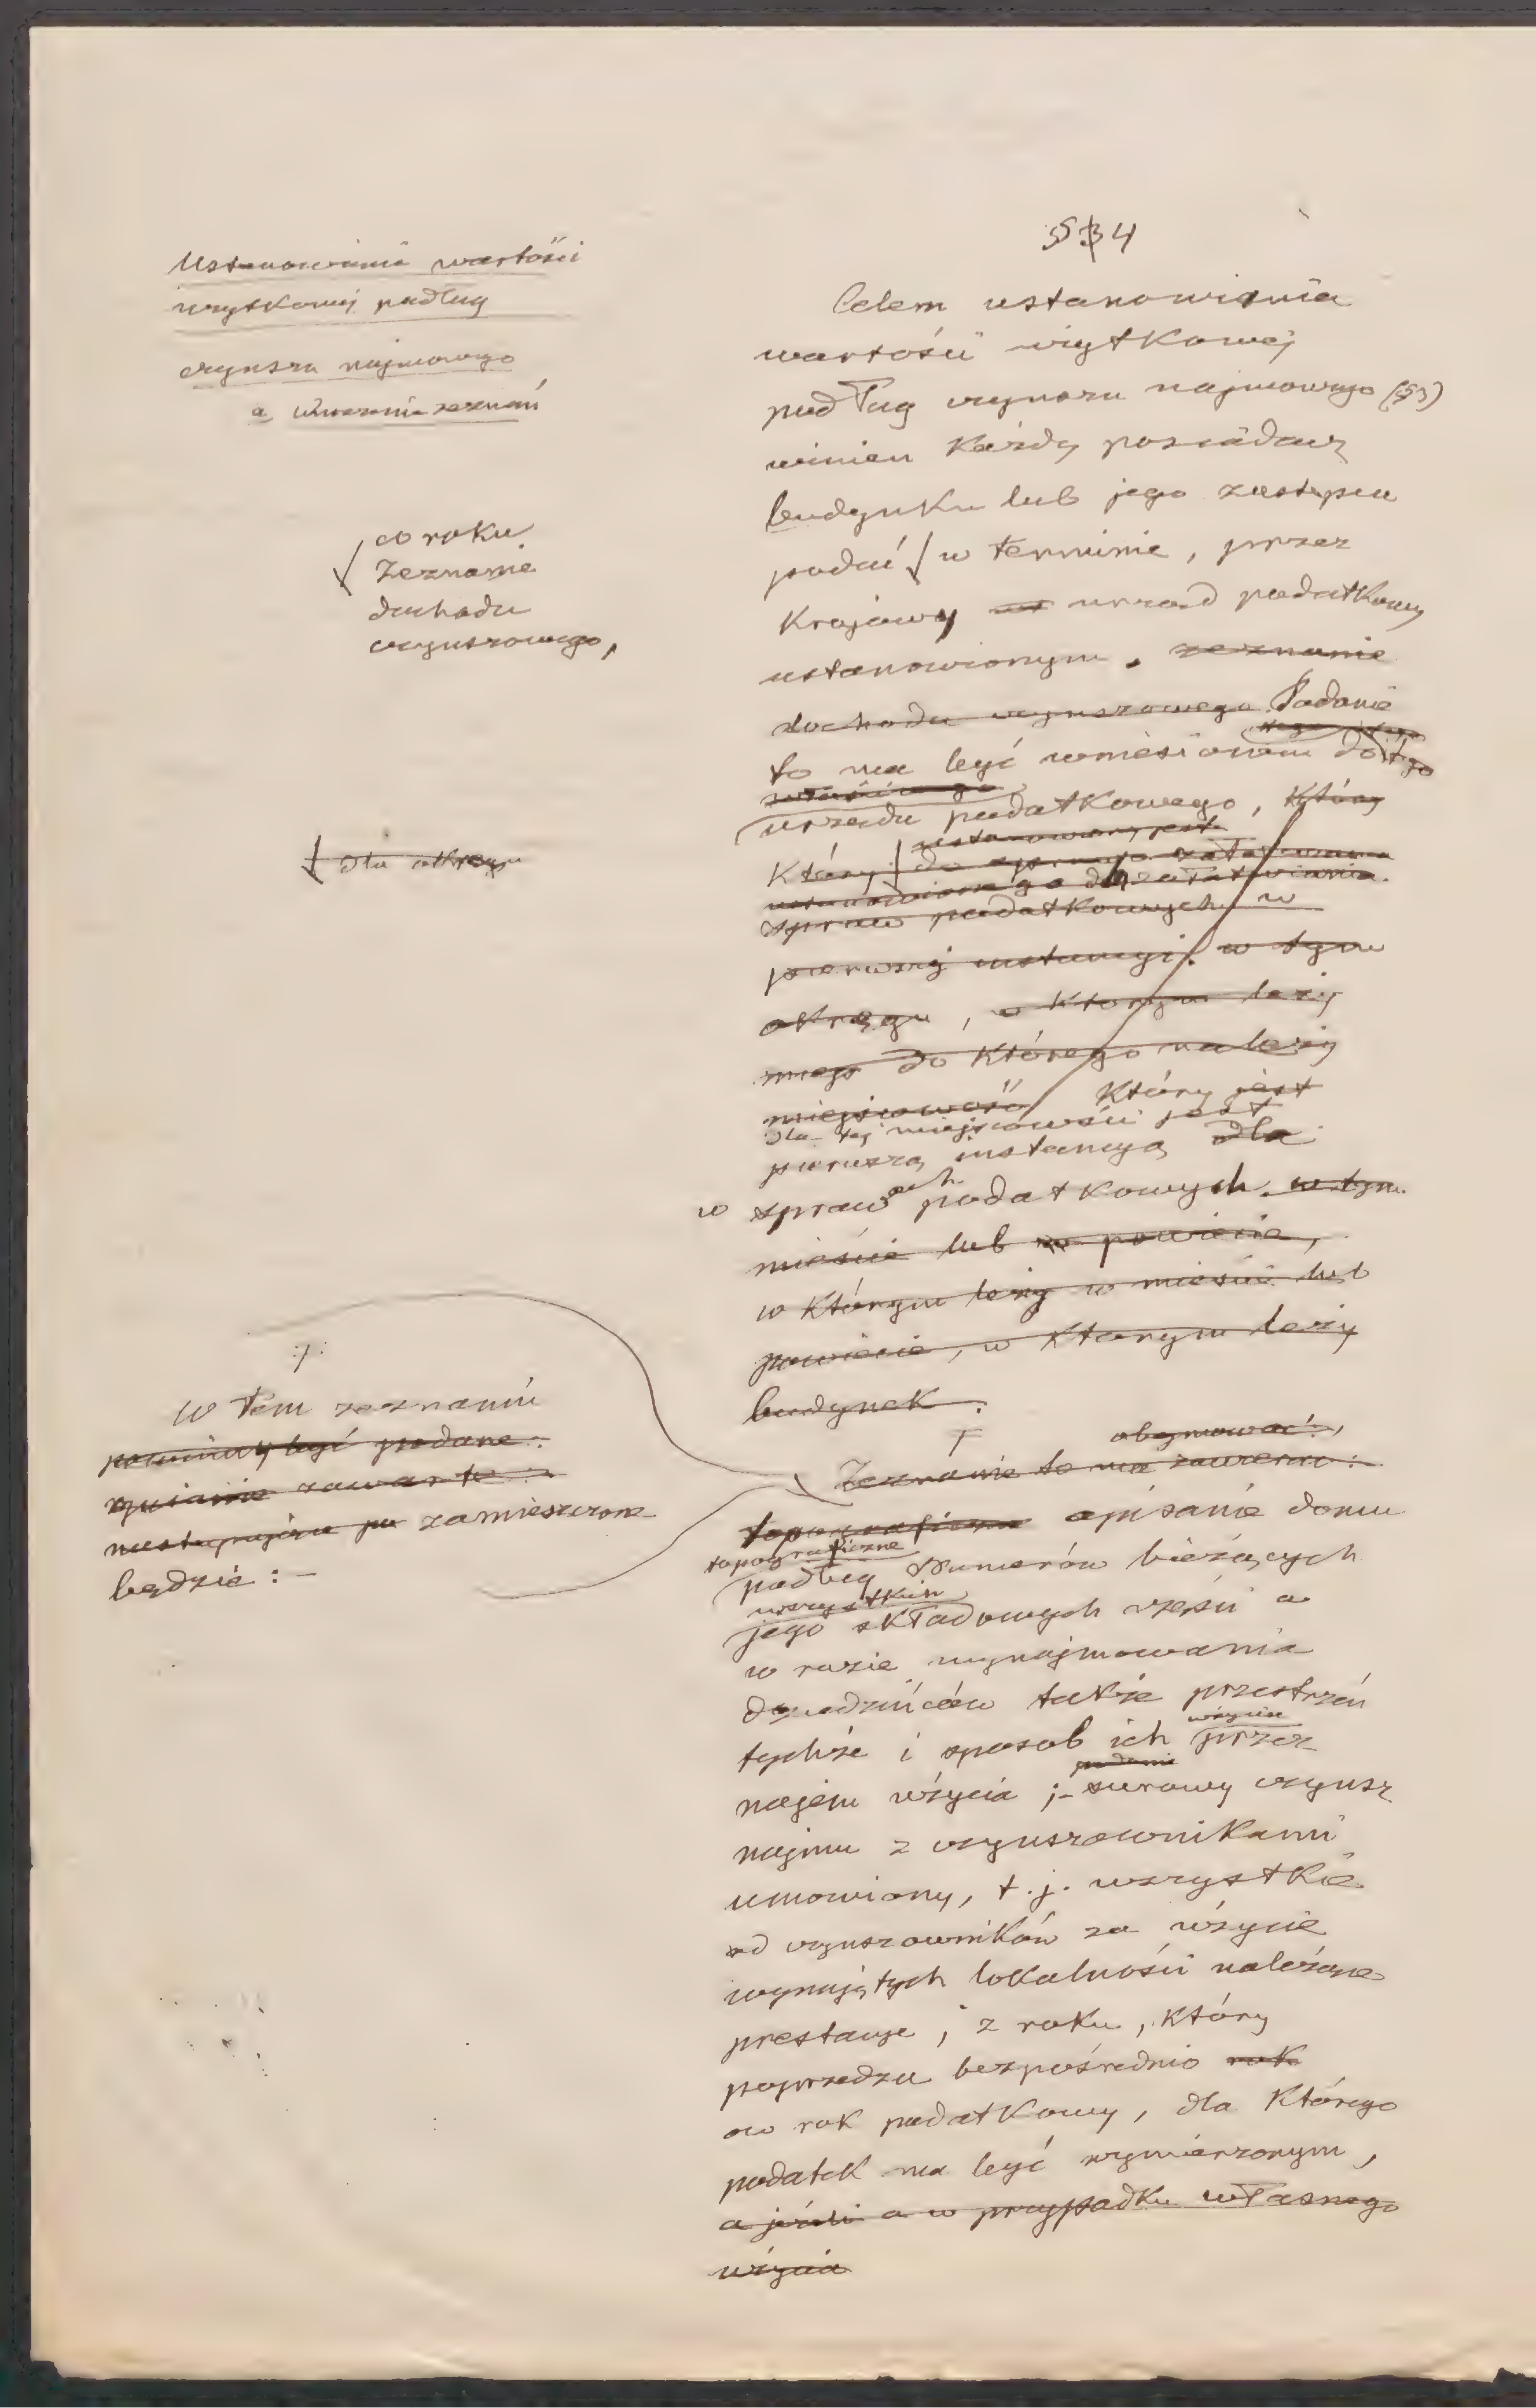 § 3 4
Ustanowienie wartości
użytkowej podług
czynszu najmowego
a wnoszenie zeznań
Celem ustanowienia
wartości użytkowej
podług czynszu najmowego (§3)
winien każdy posiadacz
budynku lub jego zastępca
podać w terminie, przez
co roku
Zeznanie
dochodu
czynszowego,
krajowy urząd podatkowy
ustanowionym, zeznanie
dochodu czynszowego. Podanie
to ma być wniesionem do tego
właściwego
urzędu podatkowego, który
ustanowiony jest
który do
dla okręgu
ustanowionego do załatwiania
spraw podatkowych w
pierwszej instancyi. w tym
okręgu, w którym leży
do którego należy
miejscowość który jest
dla tej miejscowości jest
pierwszą instancyą dla
w sprawach podatkowych. w tym
mieście lub w powiecie,
w którym leży w mieście lub
powiecie, w którym leży
budynek.
W tem zeznaniu
powinny być podane:
zawarte:
następująco zamieszczone
będzie: —
obejmować:
Zeznanie to ma zawierać:
topograficzne opisanie domu
topograficzne
podług numerów bieżących
wszystkich
jego składowych części a
w razie wynajmowania
dziedzińców także przestrzeń
tychże i sposób ich przez
użycia
najem użycia ;- surowy czynsz
podanie
najmu z czynszownikami
umowiony, t. j. wszystkie
od czynszowników za użycie
wynajętych lokalności należące
prestacye, z roku, który
poprzedza bezpośrednio rok
ów rok podatkowy, dla którego
podatek ma być wymierzonym,
a jeżeli a w przypadku własnego
użycia